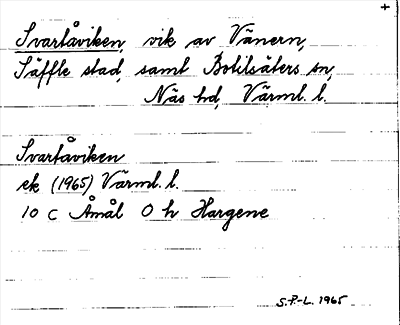 +
Svartåviken, vik av Vänern,
Säffle stad, samt Botilsäters sn,
Näs hd, Värml. l.
Svartåviken
ek (1965) Värml. l.
10 C Åmål O h Hargene
S.P.-L. 1965